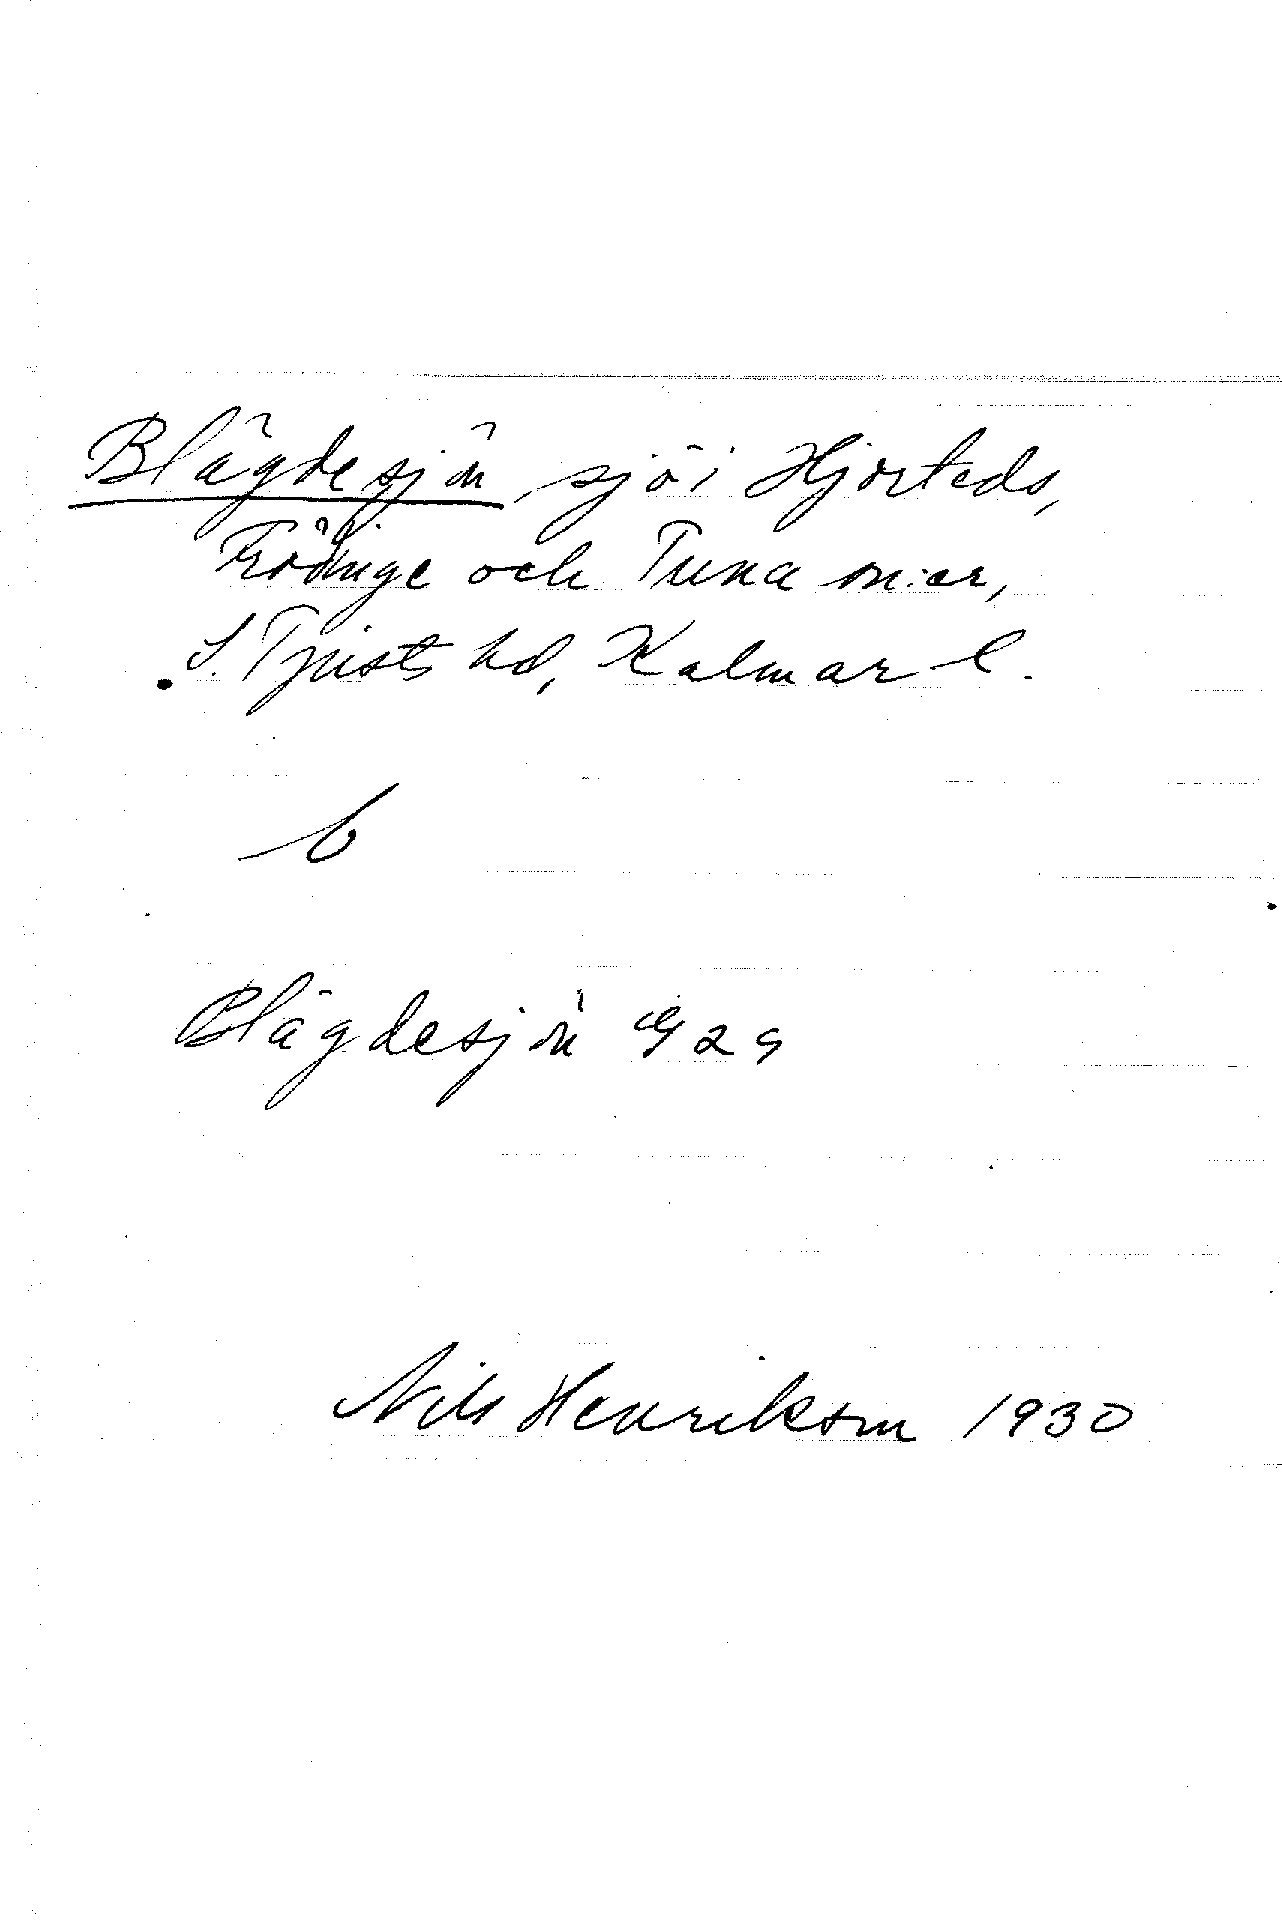 Blägdesjön, sjö i Hjorteds,
Frödinge och Tuna sn:ar,
S. Tjusts hd, Kalmar l.
Blägdesjön 29
Nils Henrikson 1930